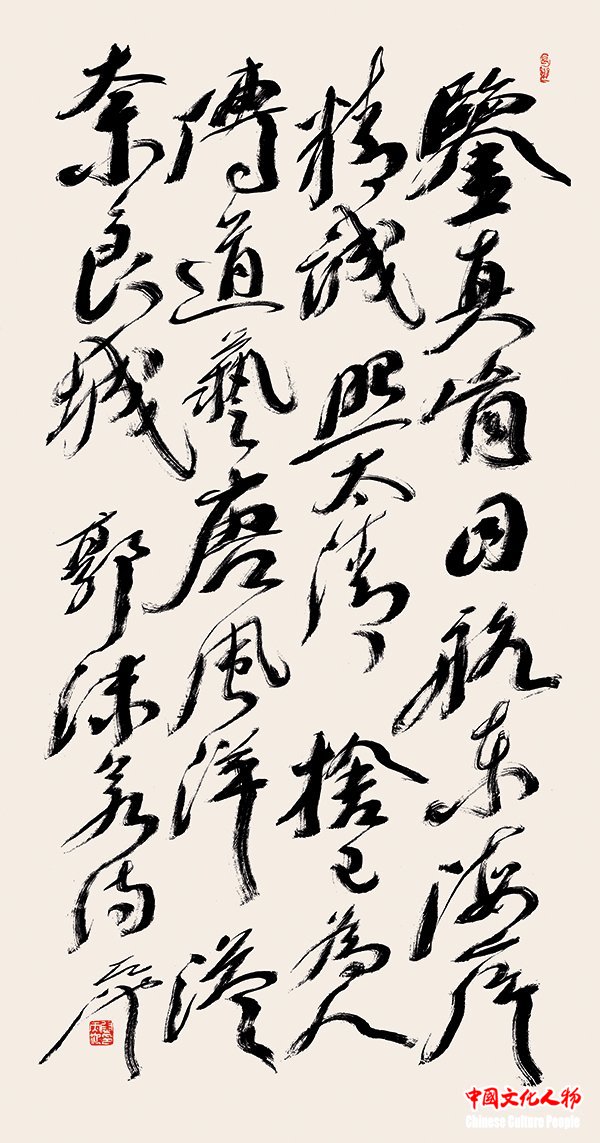 鑒真盲目航東海一片
精誠照太清捨己為人
傳道藝唐風洋溢
奈良城 郭沫若詩
中國文化人物
Chinese Culture People